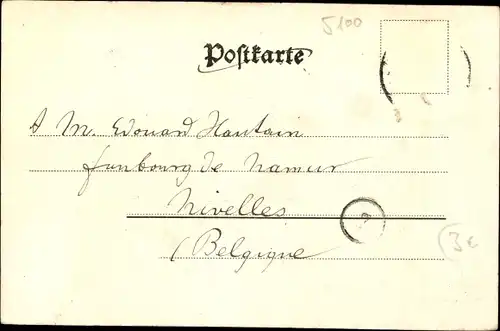 5100
Postkarte
A M. Edouard Hautain
faubourg de Namur
Nivelles
(Belgique
3€